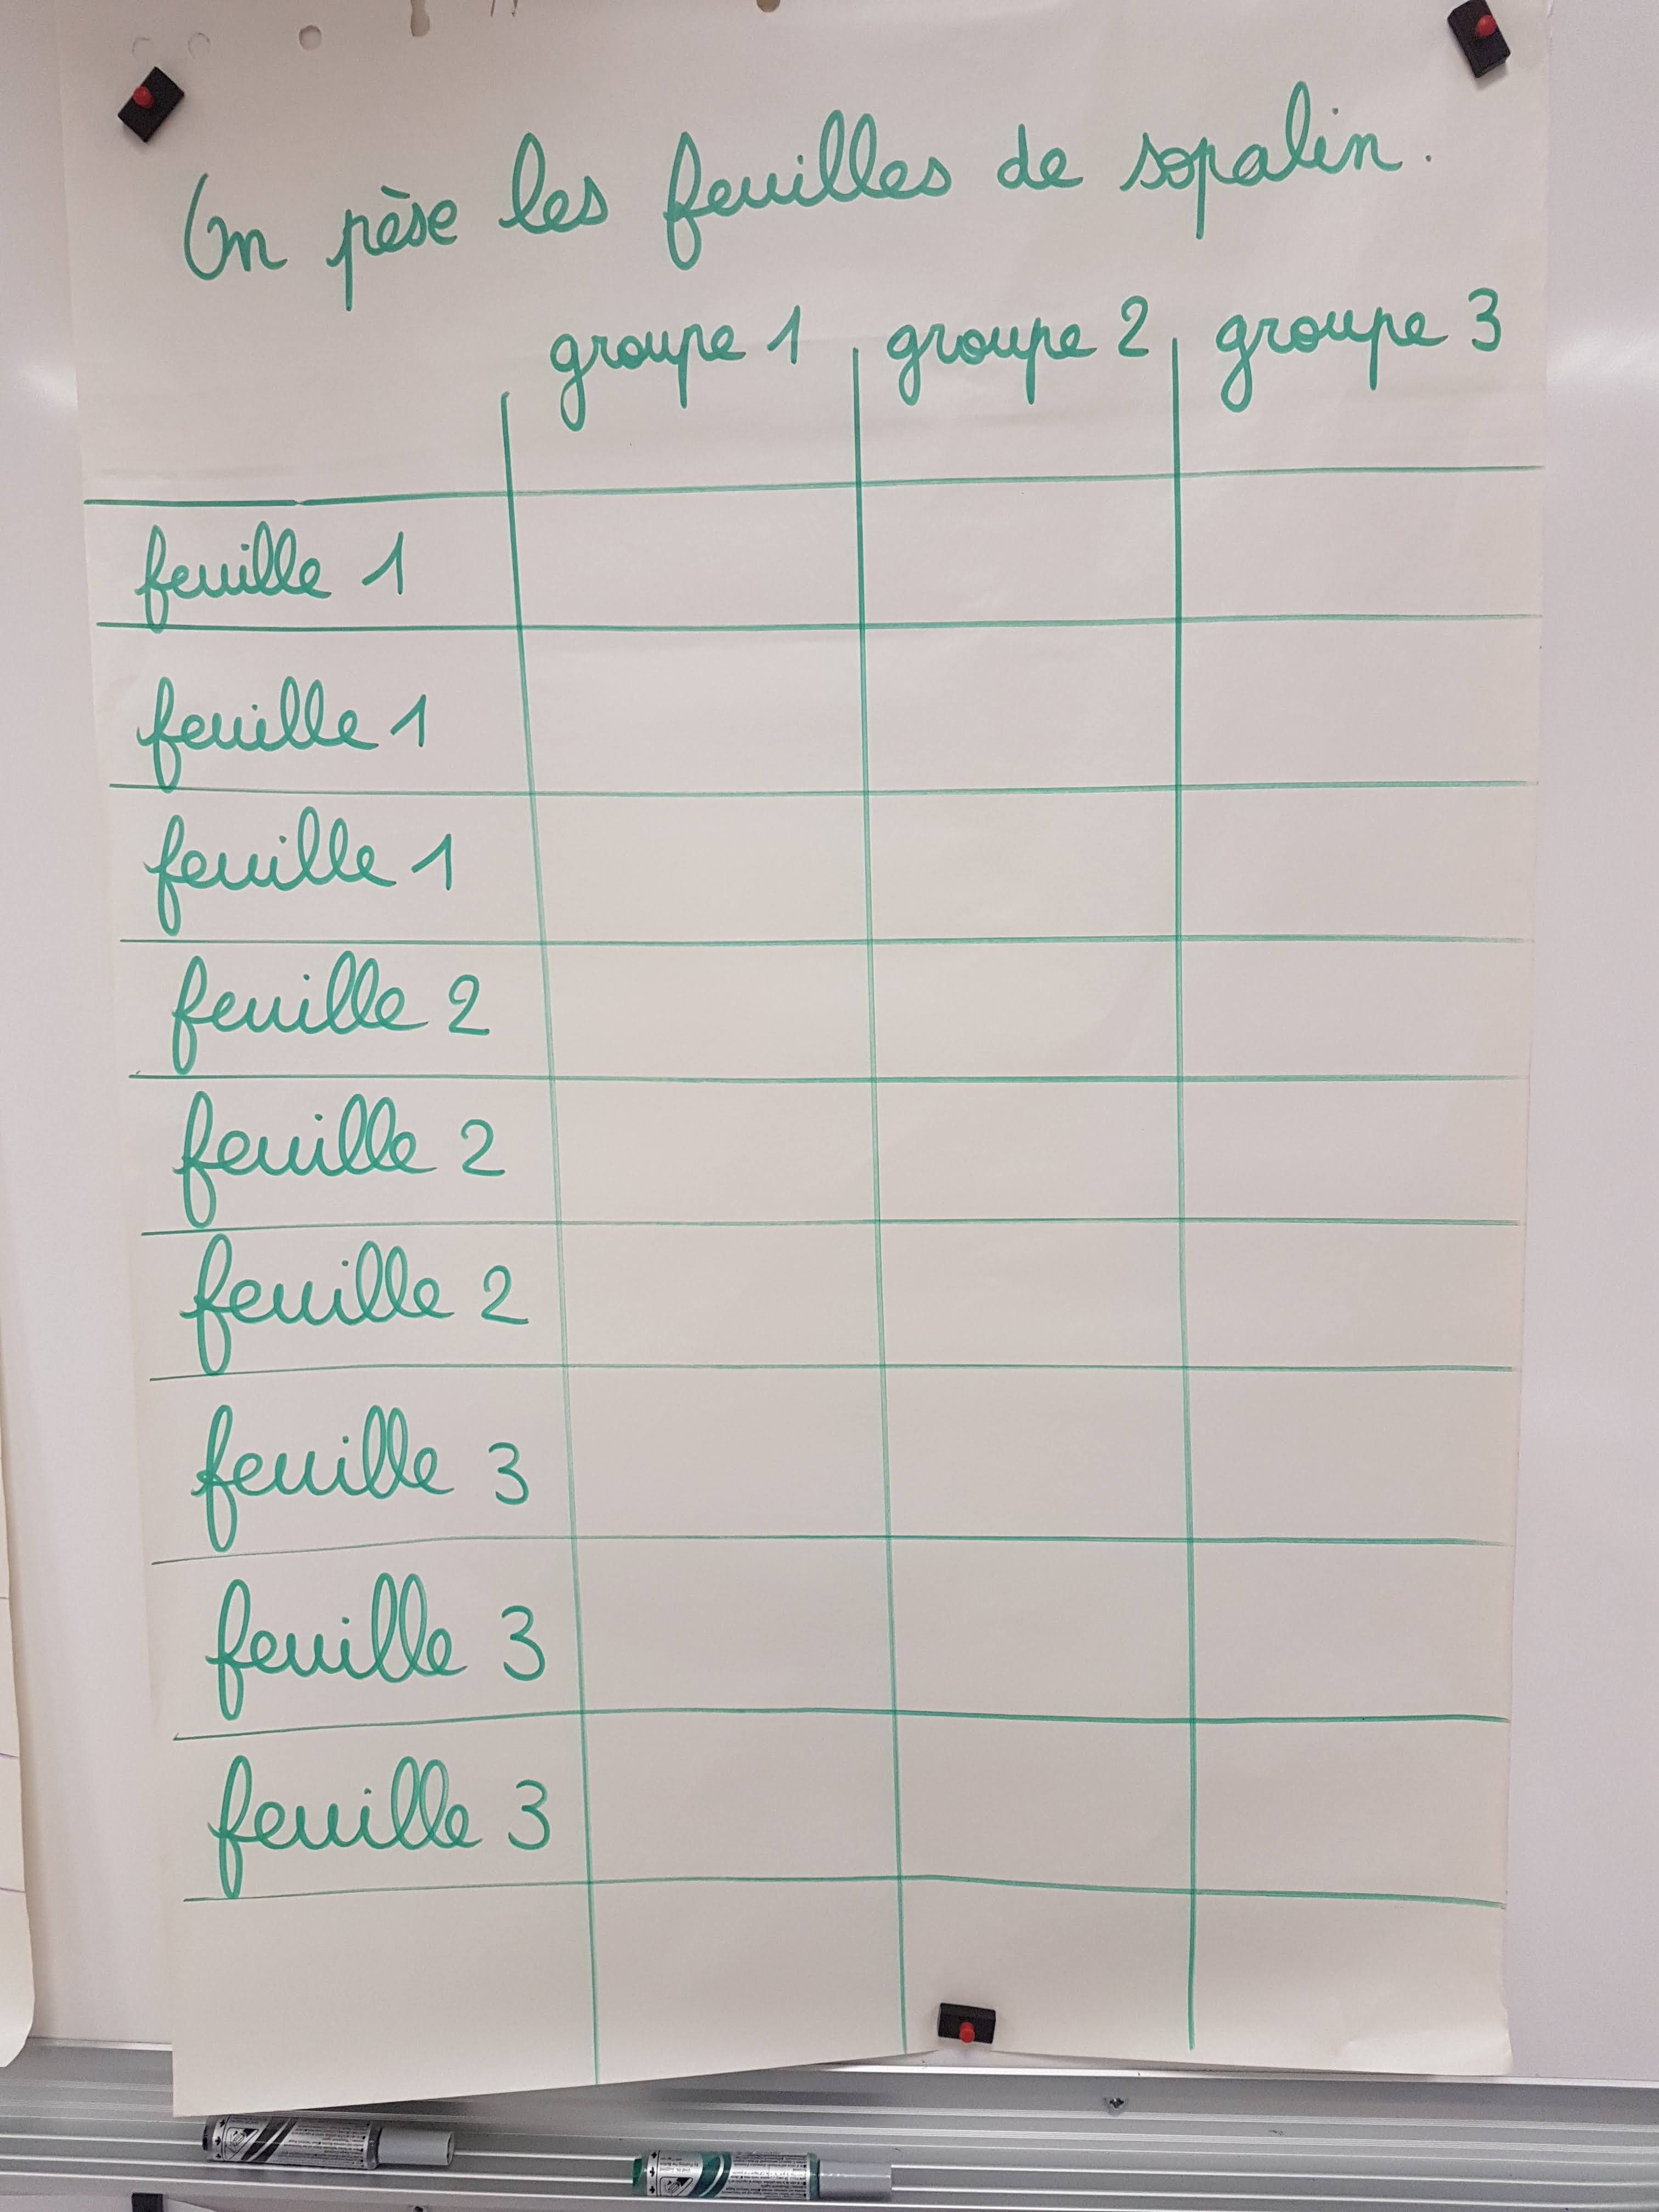 On pèse les feuilles de sopalin.
groupe 1 groupe 2 groupe 3
feuille 1
feuille 1
feuille 1
feuille 2
feuille 2
feuille 2
feuille 3
feuille 3
feuille 3